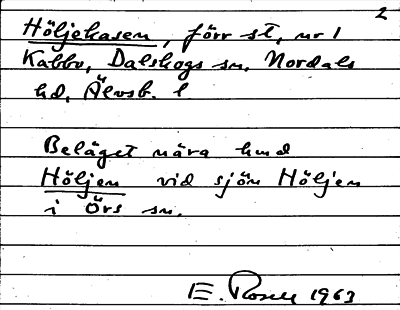 2
Höljehasen, förr st, nr 1
Kabbo, Dalskogs sn, Nordals
hd, Älvsb. l
Beläget nära hmd
Höljen vid sjön Höljen
i Örs sn.
E. Rosell 1963